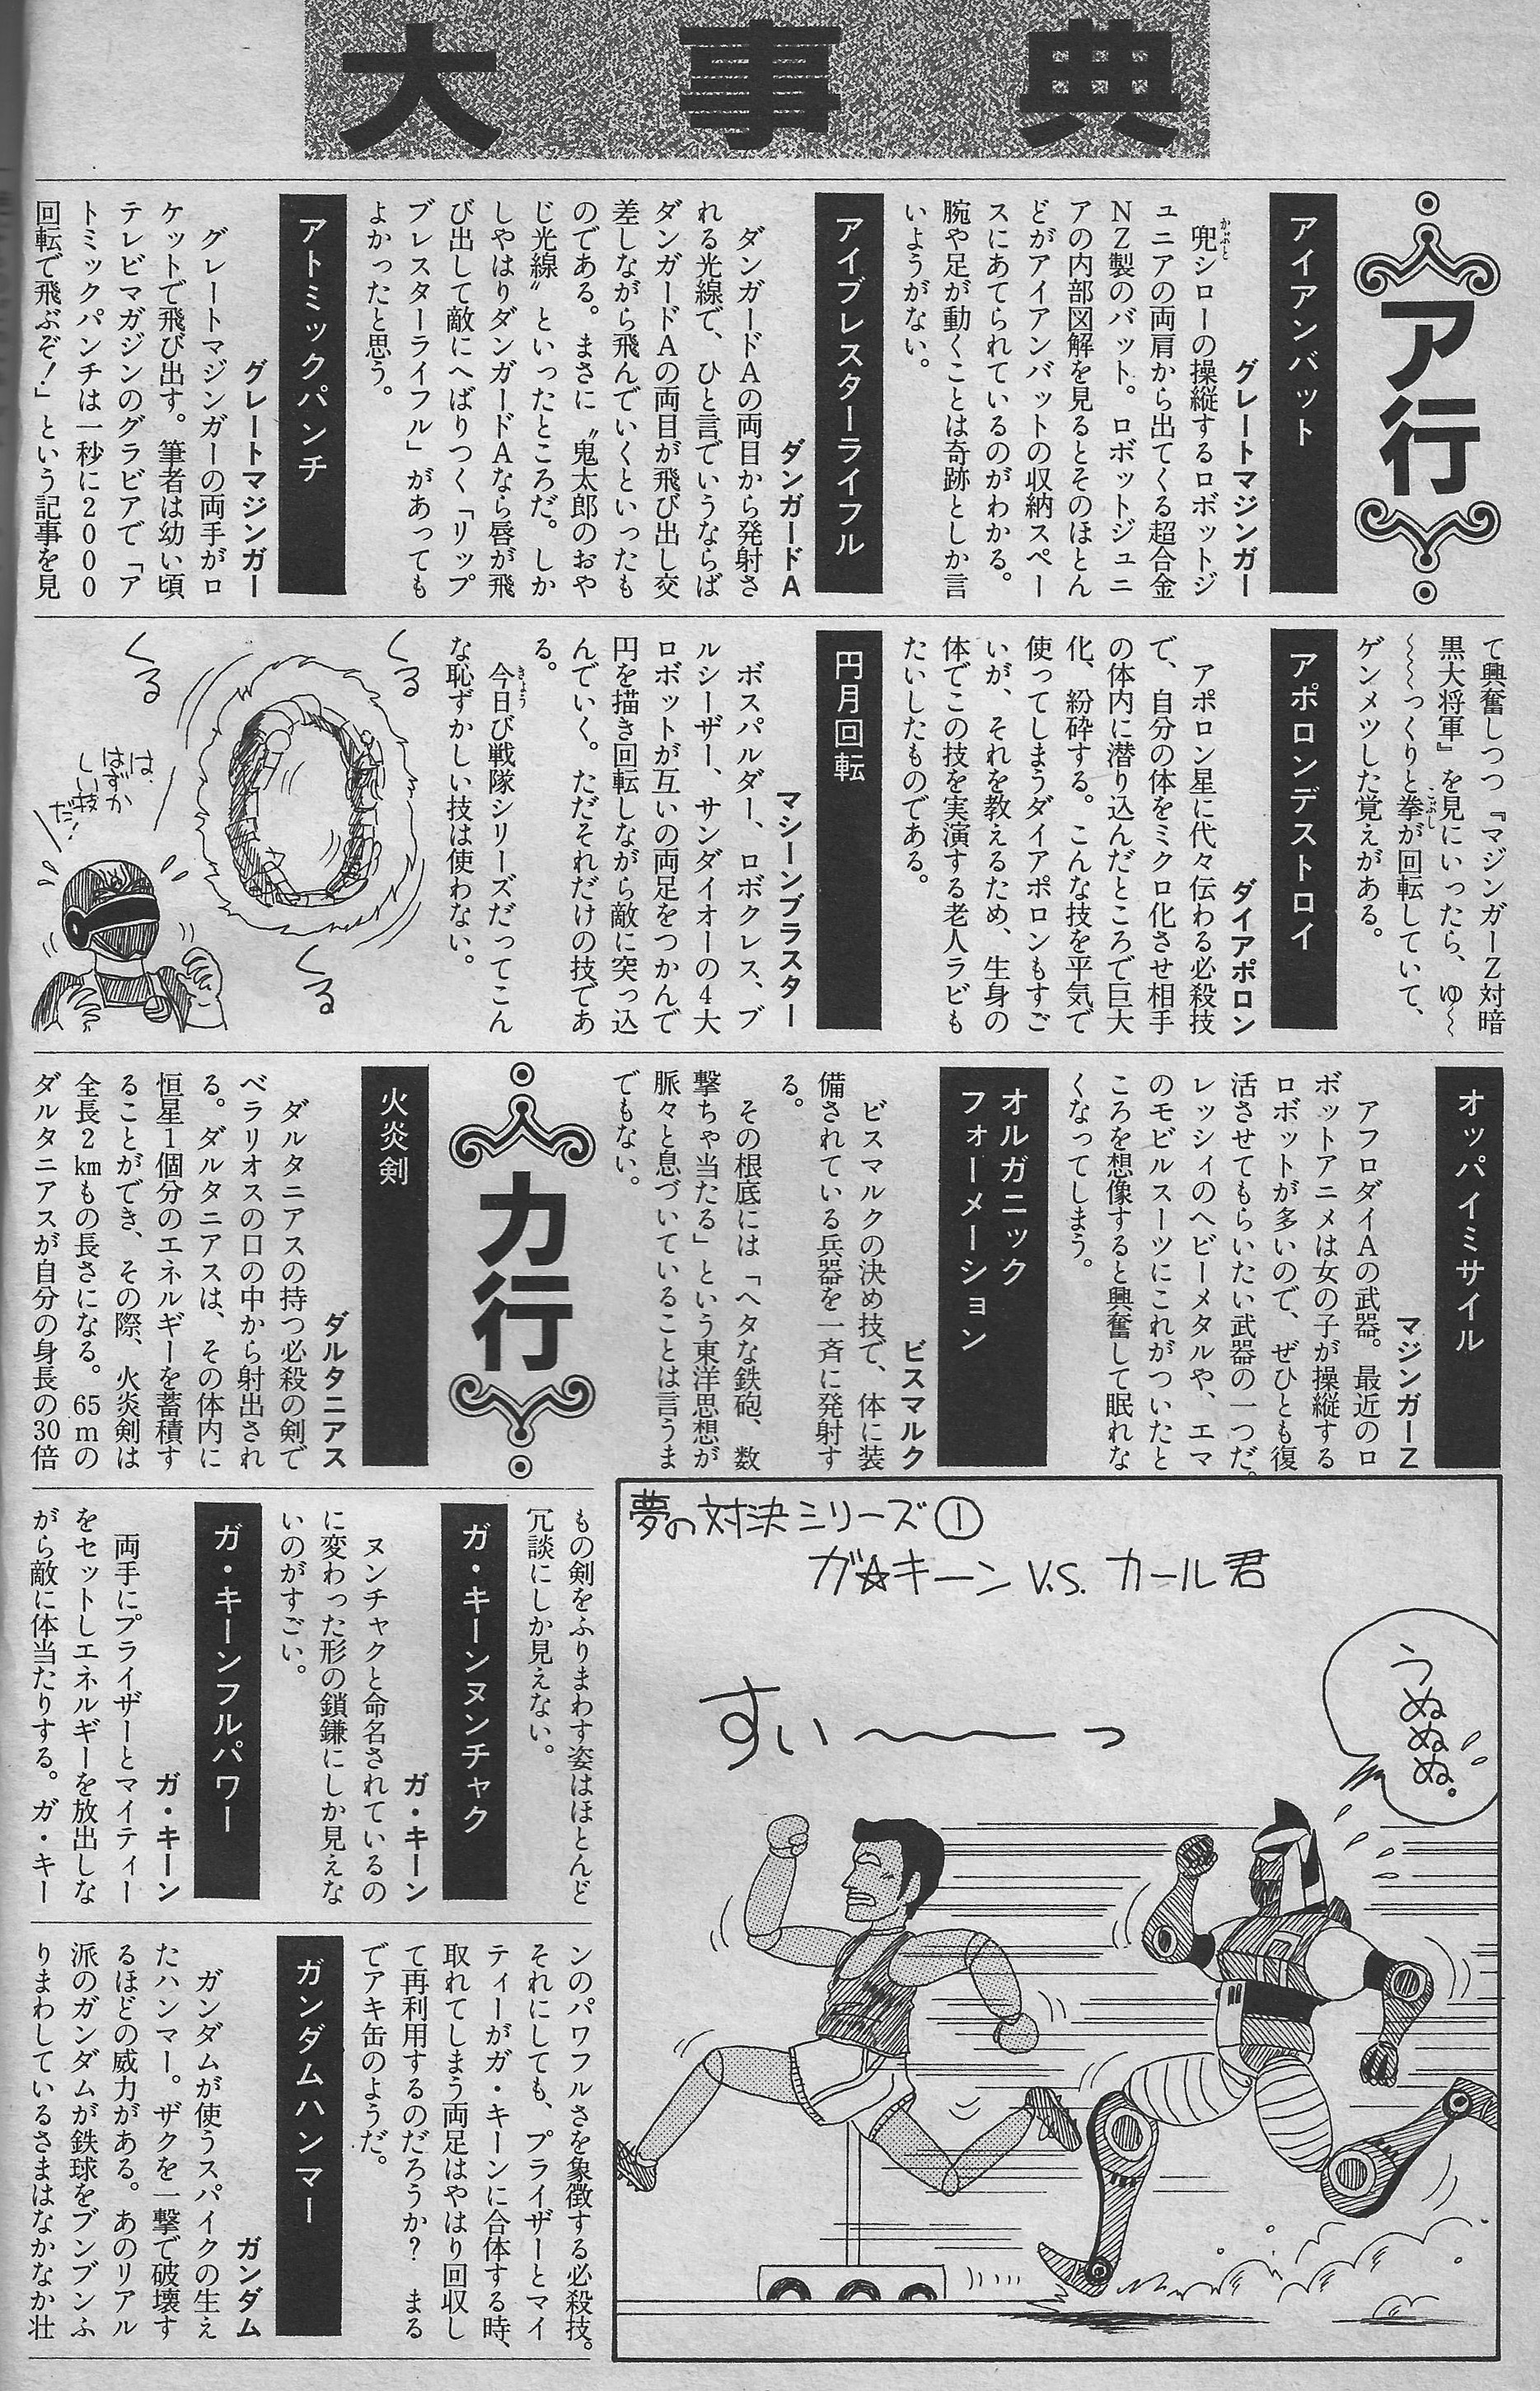 大事典
ア行
アイアンバット
グレートマジンガー
兜シローの操縦するロボットジ
ュニアの両肩から出てくる超合金
NZ製のバット。ロボットジュニ
アの内部図解を見るとそのほとん
どがアイアンバットの収納スペー
スにあてられているのがわかる。
腕や足が動くことは奇跡としか言
いようがない。
アイブレスターライフル
ダンガードA
ダンガードAの両目から発射さ
れる光線で、ひと言でいうならば
ダンガードAの両目が飛び出し交
差しながら飛んでいくといったも
のである。まさに〝鬼太郎のおや
じ光線〟といったところだ。しか
しやはりダンガードAなら唇が飛
び出して敵にへばりつく「リップ
ブレスターライフル」があっても
よかったと思う。
アトミックパンチ
グレートマジンガー
グレートマジンガーの両手がロ
ケットで飛び出す。筆者は幼い頃
テレビマガジンのグラビアで「ア
トミックパンチは一秒に2000
回転で飛ぶぞ!」という記事を見
て興奮しつつ『マジンガーZ対暗
黒大将軍』を見にいったら、ゆ〜
〜〜〜っくりと拳が回転していて、
ゲンメツした覚えがある。
アポロンデストロイ
ダイアポロン
アポロン星に代々伝わる必殺技
で、自分の体をミクロ化させ相手
の体内に潜り込んだところで巨大
化、紛砕する。こんな技を平気で
使ってしまうダイアポロンもすご
いが、それを教えるため、生身の
体でこの技を実演する老人ラビも
たいしたものである。
円月回転
マシーンブラスター
ボスパルダー、ロボクレス、ブ
ルシーザー、サンダイオーの4大
ロボットが互いの両足をつかんで
円を描き回転しながら敵に突っ込
んでいく。ただそれだけの技であ
る。
今日び戦隊シリーズだってこん
な恥ずかしい技は使わない。
くる
くる
くる
は、
はずか
しい技
だ!
オッパイミサイル
マジンガーZ
アフロダイAの武器。最近のロ
ボットアニメは女の子が操縦する
ロボットが多いので、ぜひとも復
活させてもらいたい武器の一つだ。
レッシィのヘビーメタルや、エマ
のモビルスーツにこれがついたと
ころを想像すると興奮して眠れな
くなってしまう。
オルガニック
フォーメーション
ビスマルク
ビスマルクの決め技で、体に装
備されている兵器を一斉に発射す
る。
その根底には「ヘタな鉄砲、数
撃ちゃ当たる」という東洋思想が
脈々と息づいていることは言うま
でもない。
カ行
火炎剣
ダルタニアス
ダルタニアスの持つ必殺の剣で
ベラリオスの口の中から射出され
る。ダルタニアスは、その体内に
恒星1個分のエネルギーを蓄積す
ることができ、その際、火炎剣は
全長2kmもの長さになる。65mの
ダルタニアスが自分の身長の30倍
もの剣をふりまわす姿はほとんど
冗談にしか見えない。
ガ・キーンヌンチャク
ガ・キーン
ヌンチャクと命名されているの
に変わった形の鎖鎌にしか見えな
いのがすごい。
ガ・キーンフルパワー
ガ・キーン
両手にプライザーとマイティー
をセットしエネルギーを放出しな
がら敵に体当たりする。ガ・キー
ンのパワフルさを象徴する必殺技。
それにしても、プライザーとマイ
ティーがガ・キーンに合体する時、
取れてしまう両足はやはり回収し
て再利用するのだろうか? まる
でアキ缶のようだ。
ガンダムハンマー
ガンダム
ガンダムが使うスパイクの生え
たハンマー。ザクを一撃で破壊す
るほどの威力がある。あのリアル
派のガンダムが鉄球をブンブンふ
りまわしているさまはなかなか壮
夢の対決シリーズ①
ガ☆キーン V.S. カール君
うぬぬぬ。
すぃ〜〜〜っ